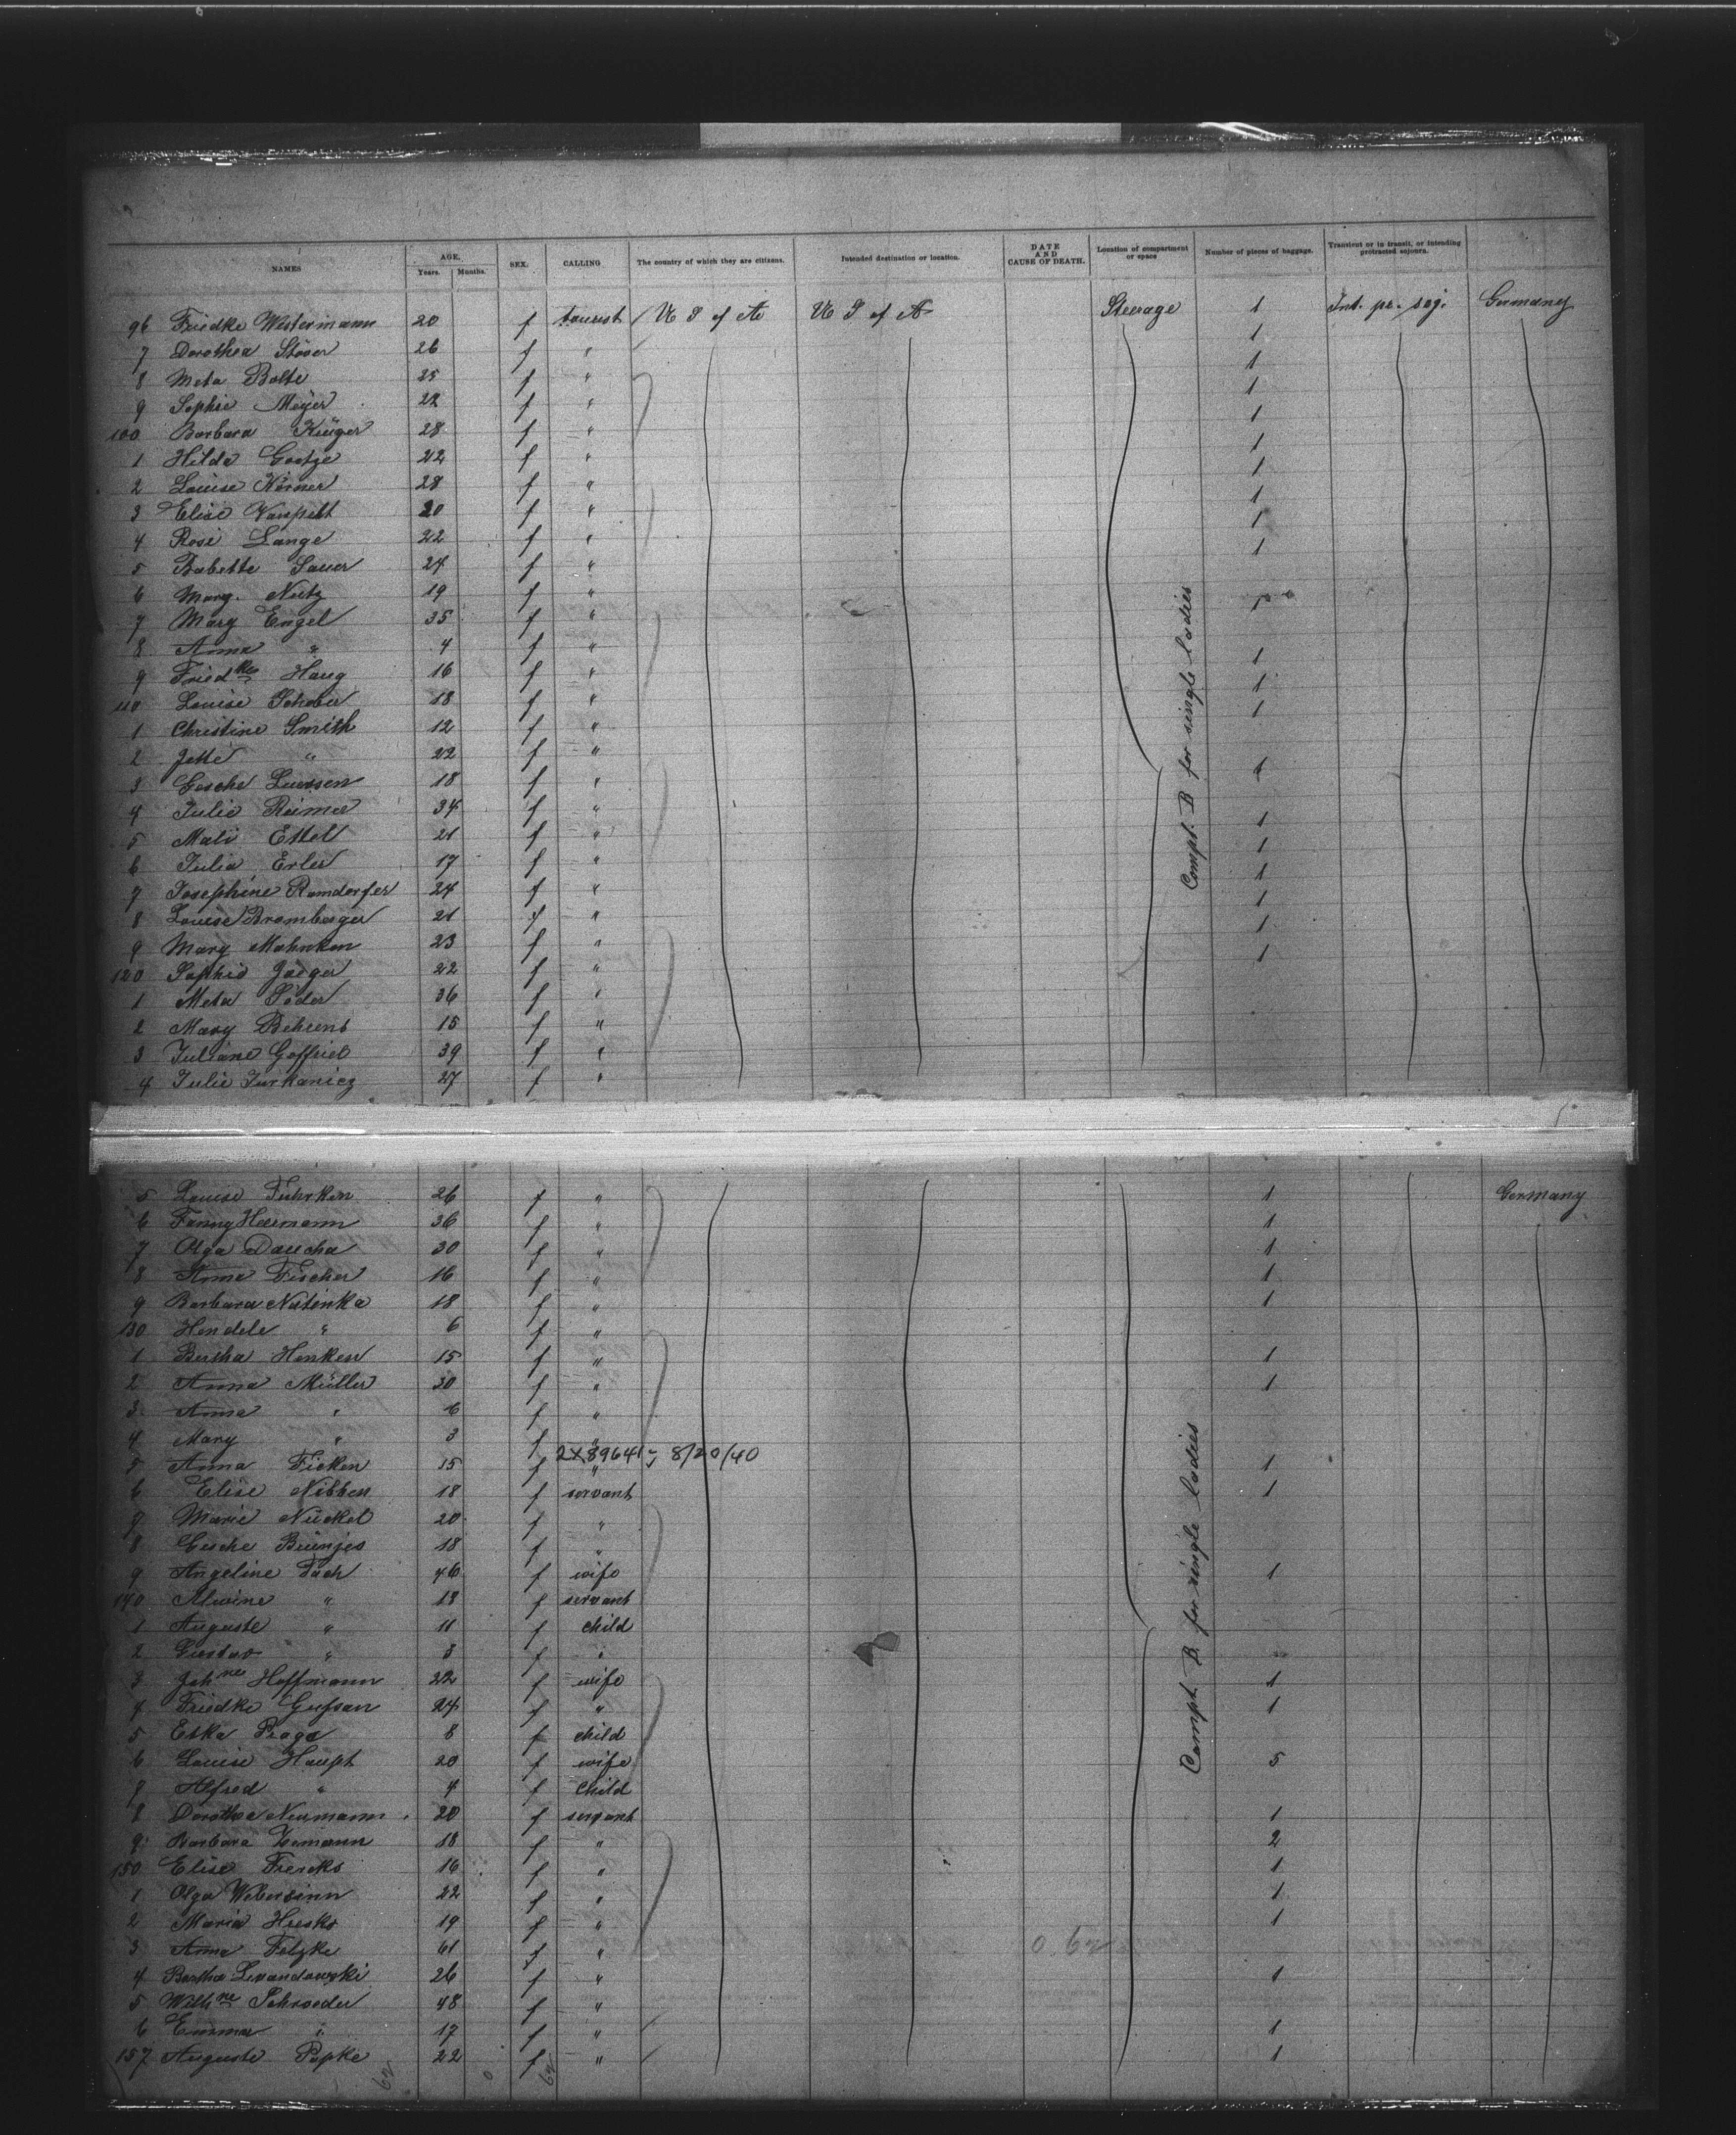 NAMES AGE. Years. Months. SEX. CALLING The country of which they are citizens. Intended destination or location. DATE AND CAUSE OF DEATH. Location of compartment or space Number of pieces of baggage. Transient or in transit, or intending protracted sojourn.
96 Friedke Westermann 20 f tourist U S of A U S of A Steerage 1 Int. pr. soj. Germany
7 Dorothea Stöver 26 f " 1
8 Meta Bolte 25 f " 1
9 Sophie Meyer 22 f " 1
100 Barbara Krüger 28 f " 1
1 Hilda Goetze 22 f " 1
2 Louise Körner 28 f " 1
3 Elise 20 f " 1
4 Rosi Lange 22 f " 1
5 Babette Sauer 24 f " 1
6 Marg. Nutz 19 f "
7 Mary Engel 35 f " 1
8 Anna " 4 f "
9 Friedke Haug 16 f " 1
110 Louise Schober 18 f " 1
1 Christine Smith 12 f " 1
2 Jette " 22 f "
3 Gesche Luessen 18 f " 1
4 Julie Reimer 34 f "
5 Mali Ettel 21 f " 1
6 Julia Erler 17 f " 1
7 Josephine Ramdorfer 24 f " 1
8 Louise Bromberger 21 f " 1
9 Mary Mahnken 23 f " 1
120 Sophie Jaeger 22 f " 1
1 Meta Söder 36 f "
2 Mary Behrens 15 f "
3 Juliane Goffriel 39 f "
4 Julie Jurkanicz 27 f "
Compt. B for single ladies
5 Louise Fuhrken 26 f " 1 Germany
6 Fanny Heermann 36 f " 1
7 Olga Daucha 30 f " 1
8 Anna Fischer 16 f " 1
9 Barbara Natinka 18 f " 1
130 Hendele " 6 f "
1 Bertha Henken 15 f " 1
2 Anna Müller 30 f " 1
3 Anna " 6 f "
4 Mary " 3 f "
2X89641 - 8/20/40
5 Anna Ficken 15 f " 1
6 Elise Nibben 18 f servant 1
7 Marie Nückel 20 f "
8 Gesche Bünjes 18 f "
9 Angeline Tach 46 f wife 1
140 Alwine " 18 f servant
1 Auguste " 11 f child
2 Gustav " 8 f "
3 Johne Hoffmann 22 f wife 1
4 Friedke 24 f " 1
5 Etka Praga 8 f child
6 Louise Haupt 20 f wife 5
7 Alfred " 4 f child
8 Dorothea Neumann 20 f servant 1
9 Barbara Zemann 18 f " 2
150 Elise Frercks 16 f " 1
1 Olga Webersinn 22 f " 1
2 Maria Hresko 19 f " 1
3 Anna Felzke 61 f "
0 62
4 Bertha Levandowski 26 f " 1
5 Wilhne Schroeder 48 f "
6 Emma " 17 f " 1
157 Auguste Papke 22 f " 1
Compt. B for single ladies
62 0 62